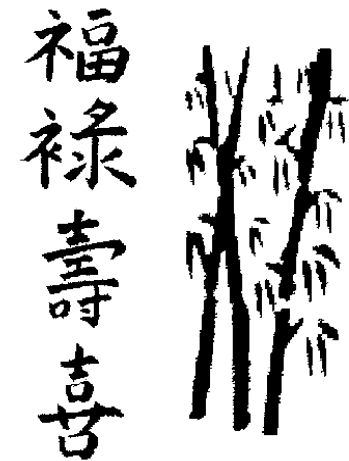 福
祿
壽
喜